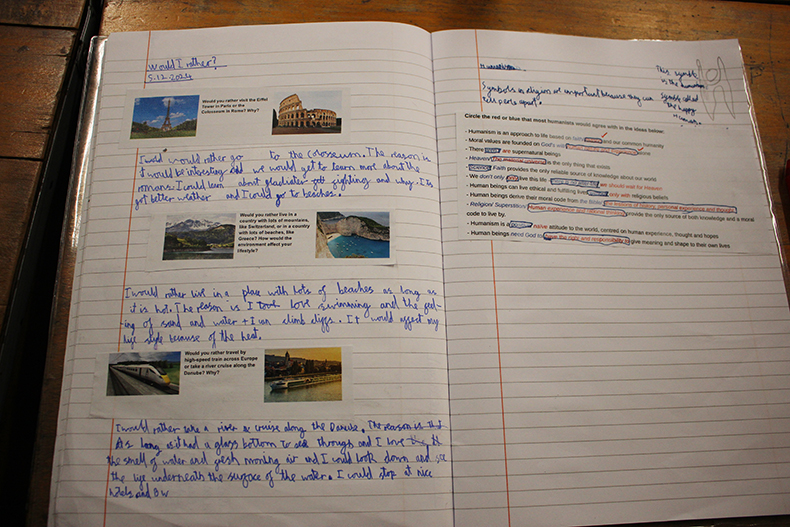 Would I rather?
5.12.2024
Would you rather visit the Eiffel
Tower in Paris or the
Colosseum in Rome? Why?
would rather go to the colosseum. The reason is
it would be intresting and we would get to learn more about the
romans. I could learn about gladiater fighting and why. It's
got better weather and I could go to beaches.
Would you rather live in a
country with lots of mountains,
like Switzerland, or in a country
with lots of beaches, like
Greece? How would the
environment affect your
lifestyle?
I would rather live in a place with lots of beaches as long as
it is hot. The reason is I love swimming and the feel-
ing of sand and water + I can climb cliffs. It would affect my
life style because of the heat.
Would you rather travel by
high-speed train across Europe
or take a river cruise along the
Danube? Why?
I would rather take a river cruise along the Danube. The reason is that
As long as it had a glass bottom to see through and I love
the smell of water and fresh morning air and I could look down and see
the life underneath the surface of the water. I could stop at nice
hotels and
Humanism
Symbols in religion are important because they can
tell peots apart.
This symbol
is the humanism
symbol called
the happy
human.
Circle the red or blue that most humanists would agree with in the ideas below:
- Humanism is an approach to life based on and our common humanity
- Moral values are founded on God's will
- There are supernatural beings
- Heaven/ The natural universe is the only thing that exists
- Science/ Faith provides the only reliable source of knowledge about our world
- We don't only live this life, we should wait for Heaven
- Human beings can live ethical and fulfilling lives only with religious beliefs
- Human beings derive their moral code from the Bible/ the lessons of history, personal experience and thought
- Religion/ Superstitious/ Human experience and rational thinking provide the only source of both knowledge and a moral
code to live by.
- Humanism is a positive/ naïve attitude to the world, centred on human experience, thought and hopes
- Human beings need God to/ have the right and responsibility to give meaning and shape to their own lives